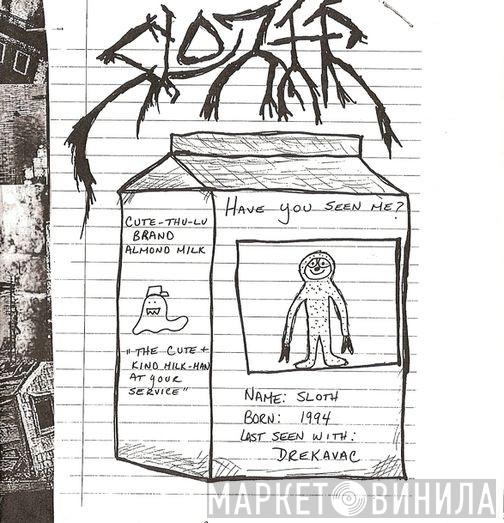 SLOTH
HAVE YOU SEEN ME?
CUTE-THU-LU
BRAND
ALMOND MILK
"THE CUTE +
KIND MILK-MAN
AT YOUR
SERVICE"
NAME: SLOTH
BORN: 1994
LAST SEEN WITH:
DREKAVAC
МАРКЕТ ВИНИЛА